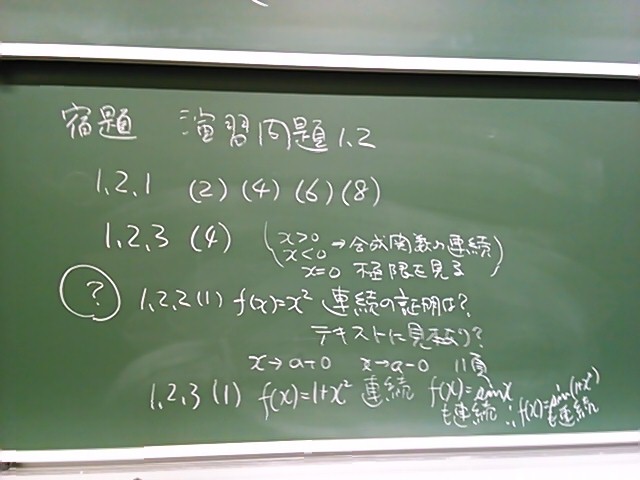 宿題 演習問題1.2
1.2.1 (2) (4) (6) (8)
1.2.3 (4) (x>0 →合成関数の連続
x<0
x=0 極限を見る)
? 1.2.2 (1) f(x)=x² 連続の証明は?
テキストに見本あり?
x→a+0 x→a-0 11頁
1.2.3 (1) f(x)=1+x² 連続 f(x)=sinx
も連続 ∴f(x)=sin(1+x²)
も連続